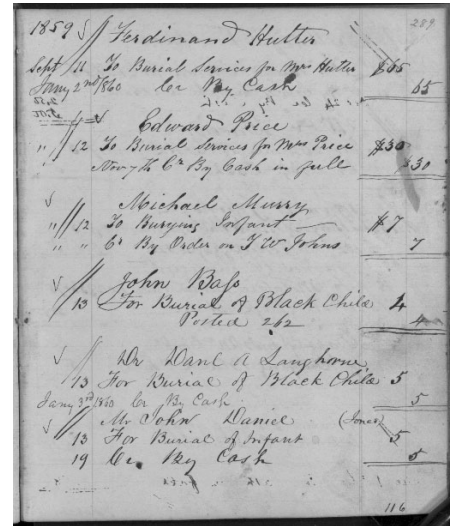 289
1859 Ferdinand Hutter
Sept 11 To Burial Services for Mrs Hutter $65
Jany 2nd 1860 Cr By Cash 65
Edward Price
" 12 To Burial Services for Mrs Price $30
Nov 7th Cr By Cash in full $30
Michael Murry
" 12 To Burying Infant $7
" " Cr By Order on T W Johns 7
John Bass
13 For Burial of Black Child 4
Posted 262 4
Dr Danl A Langhorne
13 For Burial of Black Child 5
Jany 3rd 1860 Cr By Cash 5
Mr John Daniel (Jones)
13 For Burial of Infant 5
19 Cr By Cash 5
116